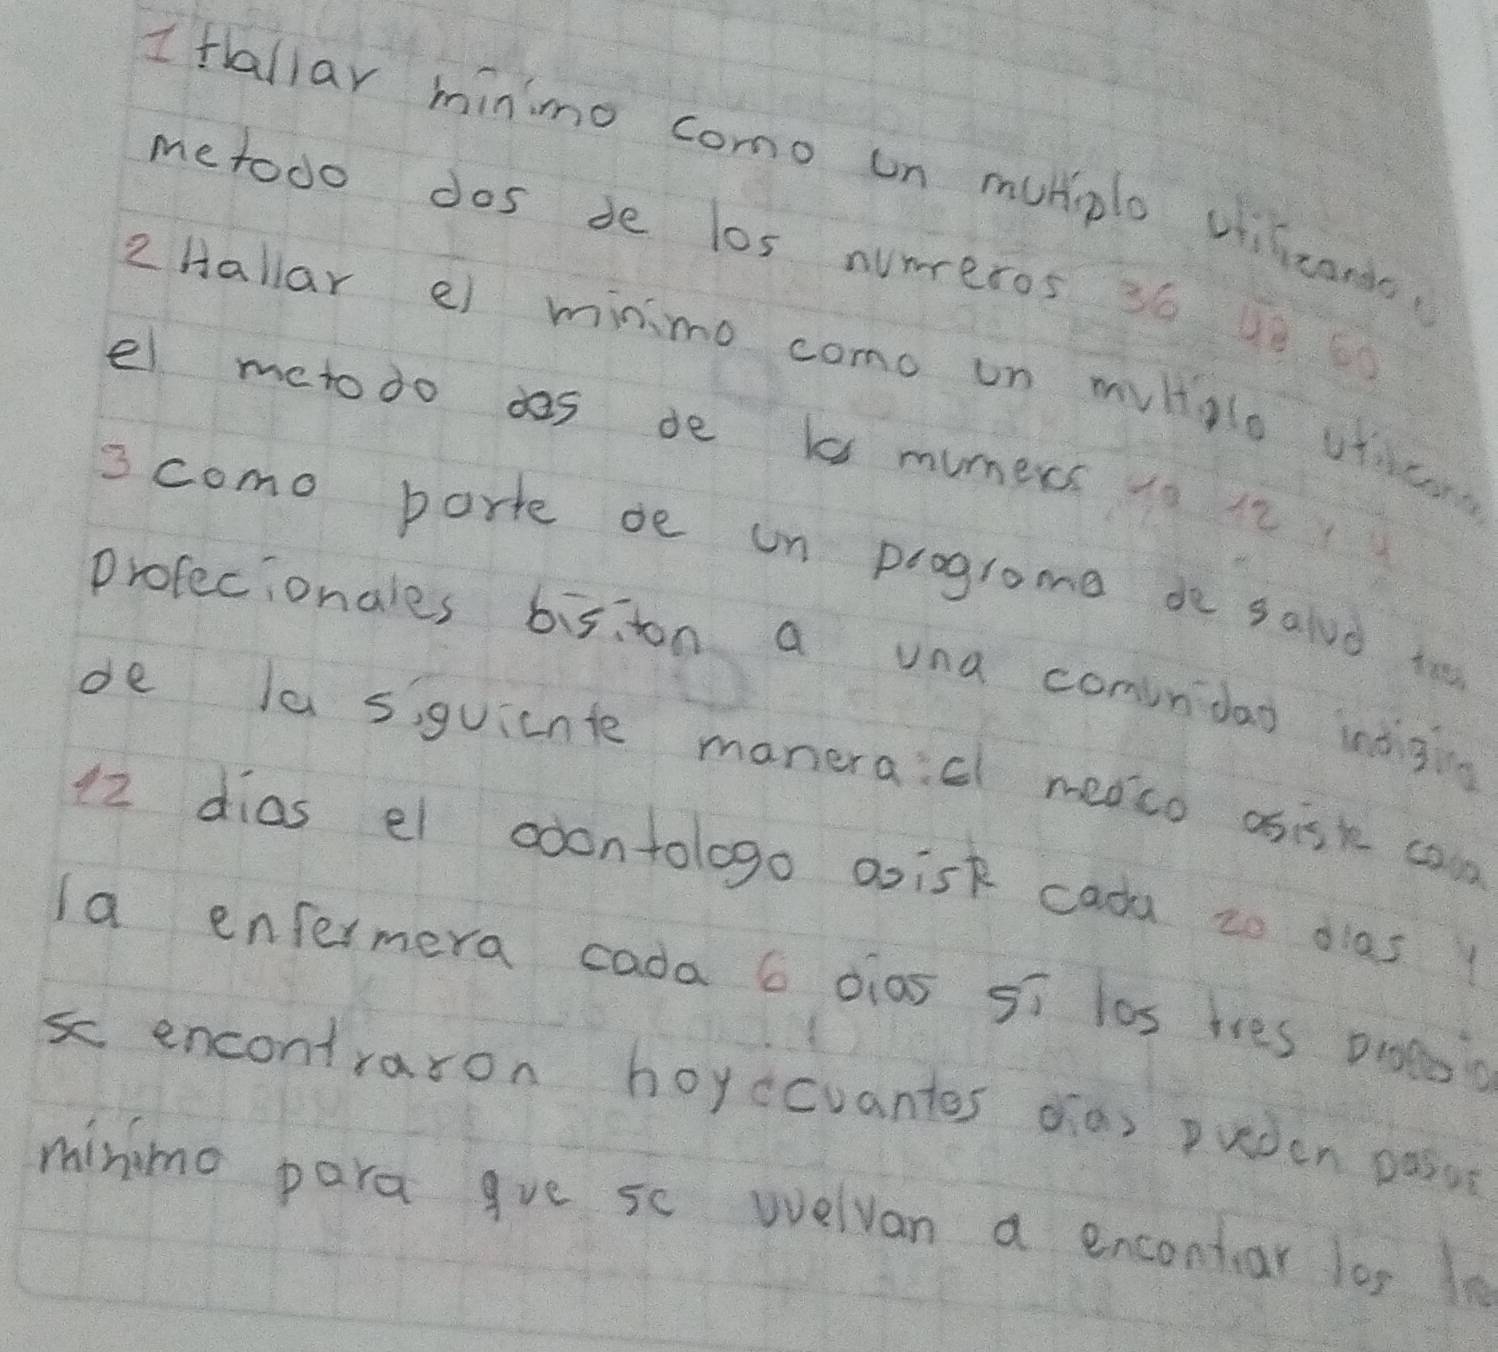 1 Hallar minimo como un multiplo utilizando
metodo dos de los numreros 36 48 60
2 Hallar el minimo como un multiplo
el metodo dos de los mumers 10 12 , 4
3 como parte de un programa de salud
profecionales bisitan a una comunidad
de la siguiente manera: el medico asiste cada
12 dias el odontologo asiste cada 20 dias y
la enfermera cada 6 dias si los tres
se encontraron hoy ¿cuantos dias pueden pasar
minimo para que se vuelvan a encontrar los